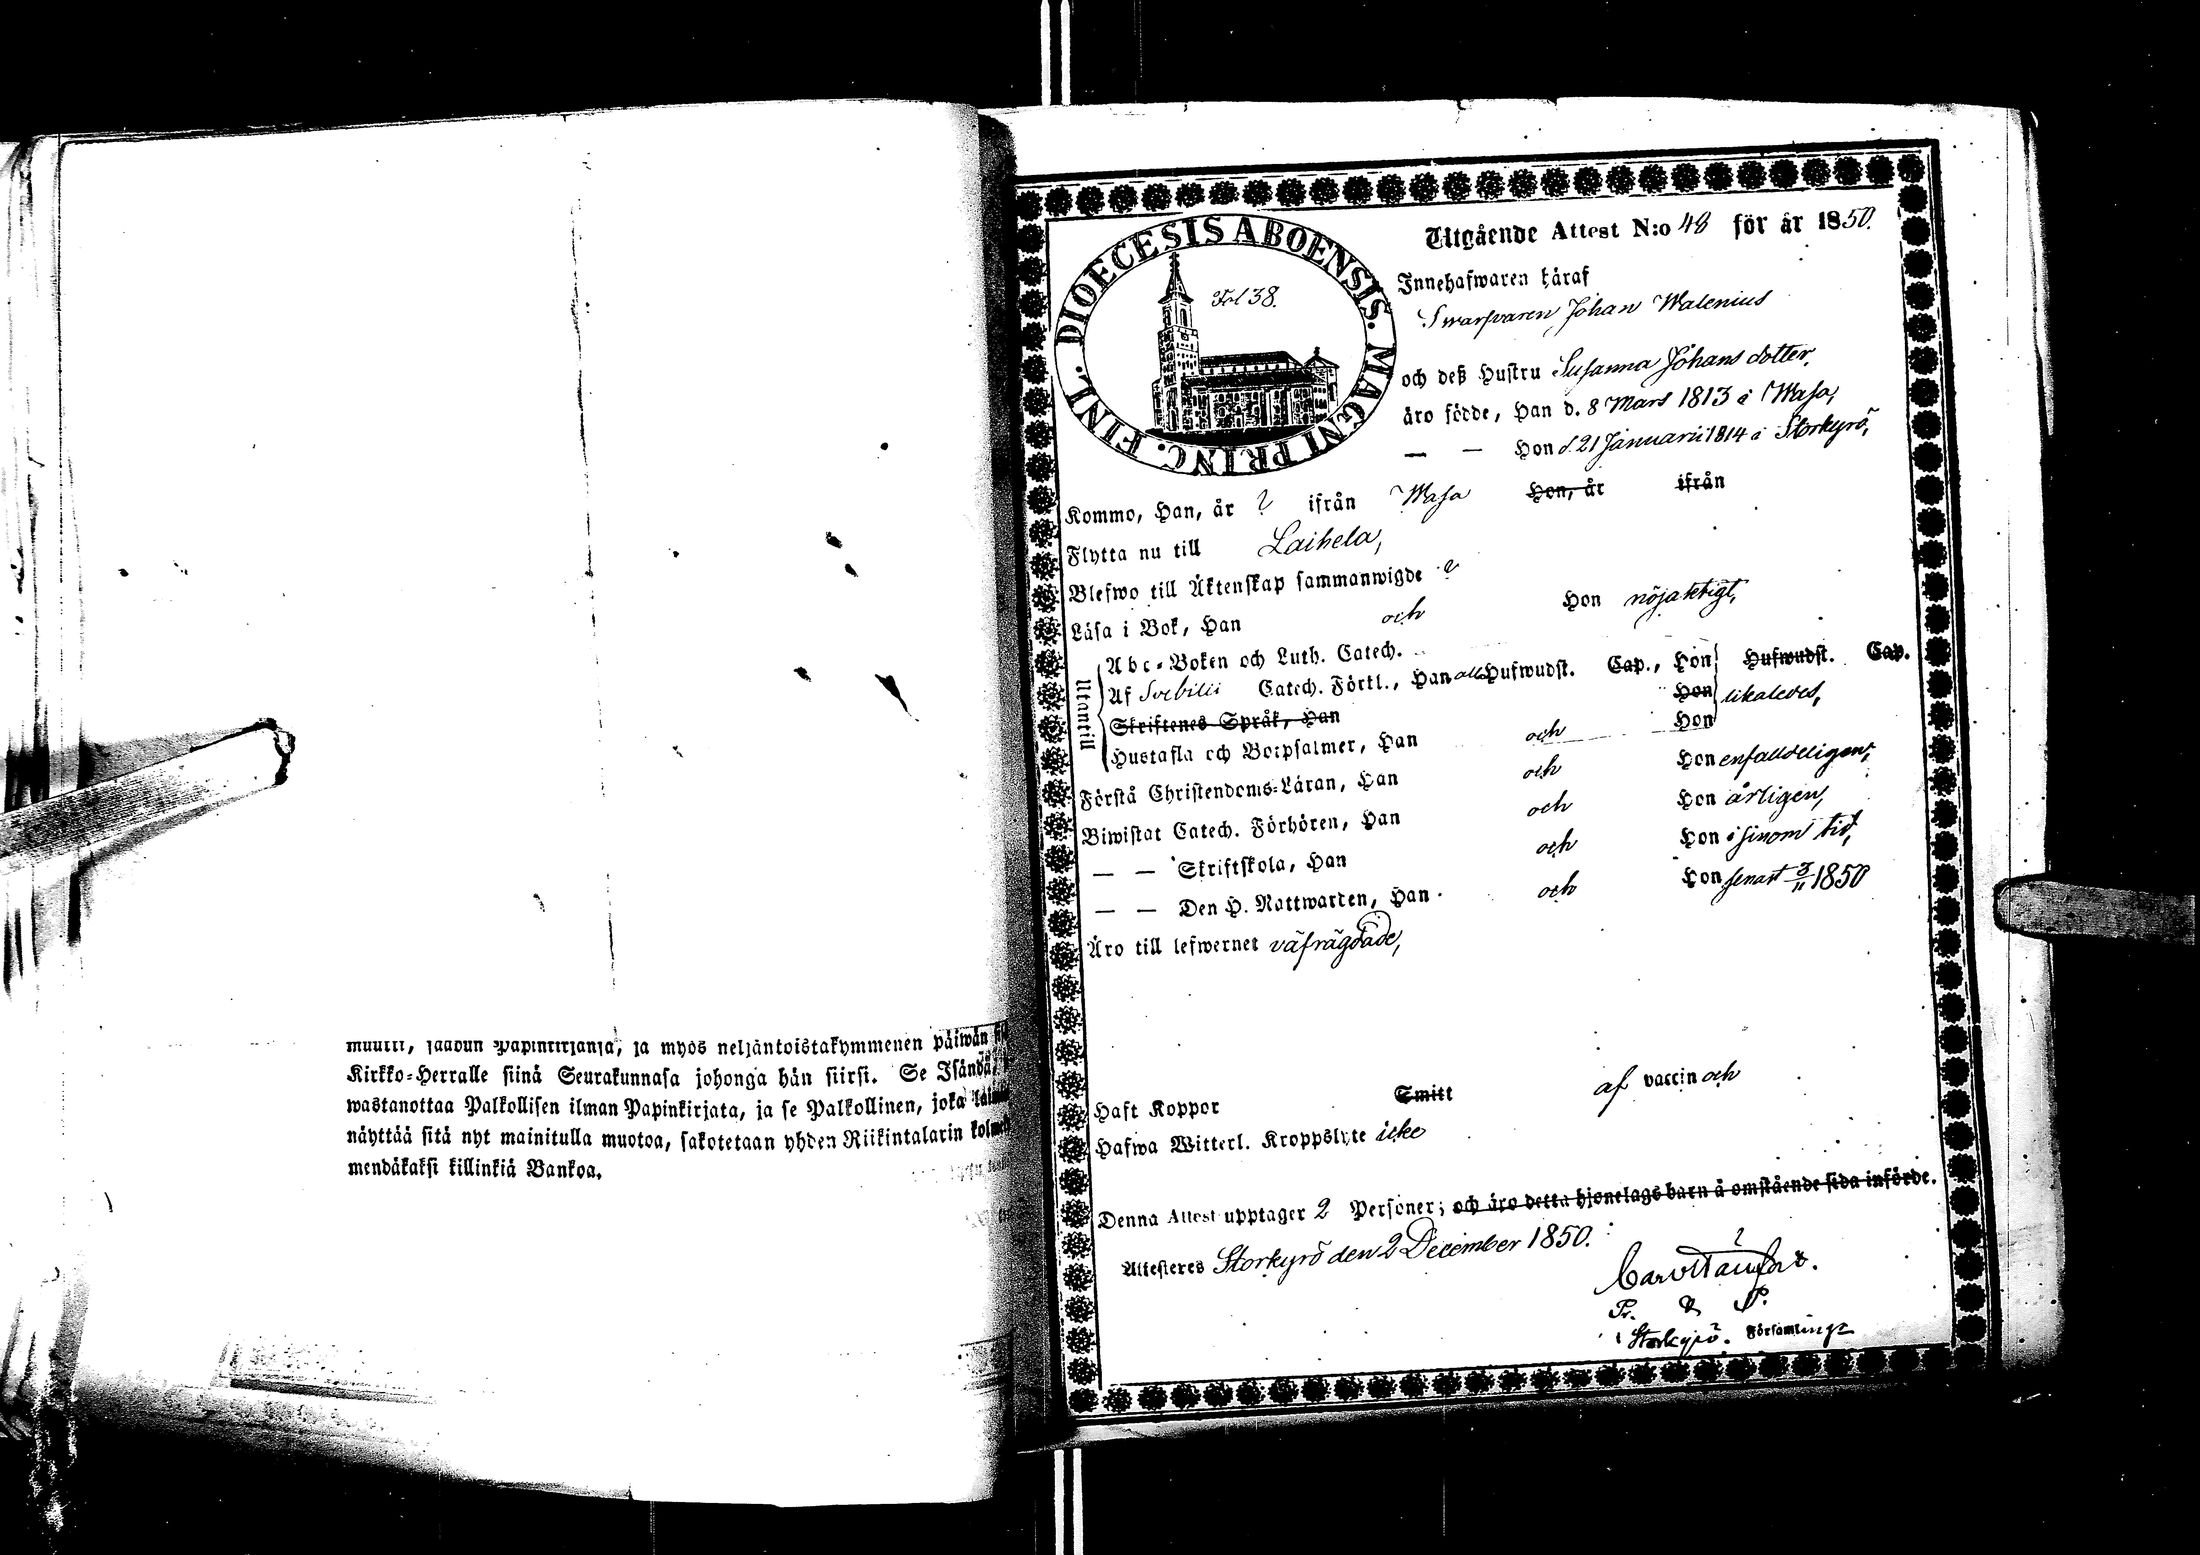 muutti, saadun Papinkirjansa, ja myös neljäntoistakymmenen päiwän
Kirkko-Herralle siinä Seurakunnasa johonga hän siirsi. Se Isändä,
wastanottaa Palkollisen ilman Papinkirjata, ja se Palkollinen, joka
näyttää sitä nyt mainitulla muotoa, sakotetaan yhden Riikintalarin
mendäkaksi killinkiä Bankoa.
DIOECESIS ABOENSIS. MAGNI PRINC. FINL.
Fol 38.
Utgående Attest N:o 48 för år 1850.
Innehafwaren häraf
Swarfvaren Johan Walenius
och deß Hustru Susanna Johans dotter,
äro födde, Han d. 8 Mars 1813 i Wasa,
— — Hon d. 21 Januarii 1814 i Storkyrö,
Kommo, Han, år ? ifrån Wasa Hon, år ifrån
Flytta nu till Laihela,
Blefwo till Äktenskap sammanwigde ?
Läsa i Bok, Han och Hon nöjaktigt,
Utantill
Abc-Boken och Luth. Catech.
Af Svebilii Catech. Förkl., Han all Hufwudst. Cap., Hon Hufwudst. Cap.
Skriftenes Språk, Han Hon likaledes,
Hustafla och Botpsalmer, Han och Hon
Förstå Christendoms-Läran, Han och Hon enfalldeligen,
Biwistat Catech. Förhören, Han och Hon årligen,
— — Skriftskola, Han och Hon i sinom tid,
— — Den H. Nattwarden, Han och Hon senast 3/11 1850
Äro till lefwernet väfrägdade,
Haft Koppor Smitt af vaccin och
Hafwa Witterl. Kroppslyte icke
Denna Attest upptager 2 Personer; och äro detta hjonelags barn å omstående sida införde.
Attesteras Storkyrö den 2 December 1850.
Pr. & P.
i Storkyrö. Församlinge